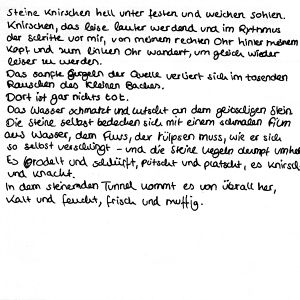 Steine Knirschen hell unter festen und weichen Sohlen.
Knirschen, das leise lauter werdend und im Rytmus
der Schritte vor mir, von meinem rechten Ohr hinter meinem
Kopf und zum linken Ohr wandert, um gleich wieder
leiser zu werden.
Das sanfte gurgeln der Quelle verliert sich im tosenden
Rauschen des kleinen Baches.
Dort ist gar nichts tot.
Das Wasser schmatzt und lutscht an dem geitschligen Stein
Die Steine selbst bedecken sich mit einem schmalen Film
aus Wasser, dem Fluss, der rülpsen muss, wie er sich
so selbst verschlingt - und die Steine kegeln dumpf umher
Es brodelt und schlürft, pitscht und platscht, es knirscht
und knackt.
In dem steinernden Tunnel kommt es von überall her,
Kalt und feucht, frisch und muffig.